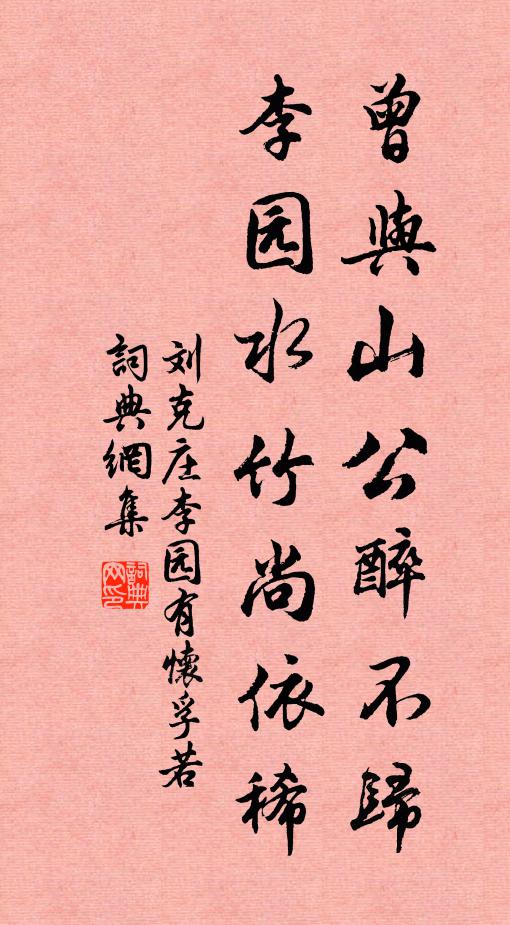 曾與山公醉不歸
李园水竹尚依稀
刘克庄李园有懷孚若
詞典網集
詞典网印